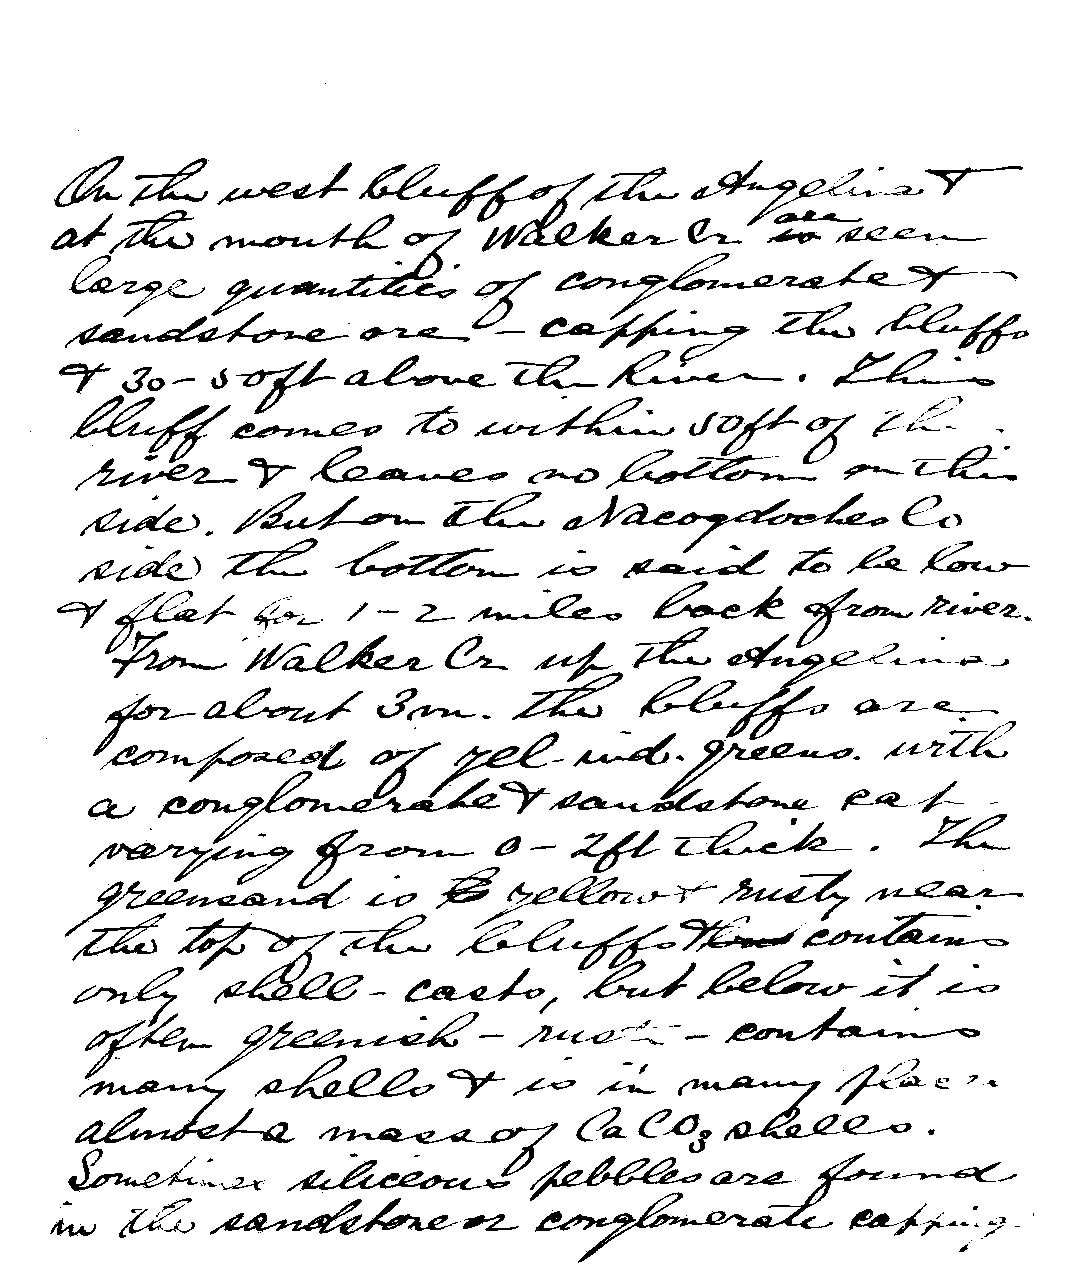 On the west bluff of the Angelina &
at the mouth of Walker Cr are seen
large quantities of conglomerate &
sandstone ore - capping the bluffs
& 30-50ft above the River. This
bluff comes to within 50ft of the
river & leaves no bottom on this
side. But on the Nacogdoches Co
side the bottom is said to be low
& flat for 1-2 miles back from river.
From Walker Cr up the Angelina
for about 3m. the bluffs are
composed of yel-ind. greens. with
a conglomerate & sandstone cap
varying from 0-2ft thick. The
greensand is yellow & rusty near
the top of the bluffs & contains
only shell-casts, but below it is
often greenish - rusty - contains
many shells & is in many places
almost a mass of CaCO3 shells.
Sometimes siliceous pebbles are found
in the sandstone or conglomerate capping